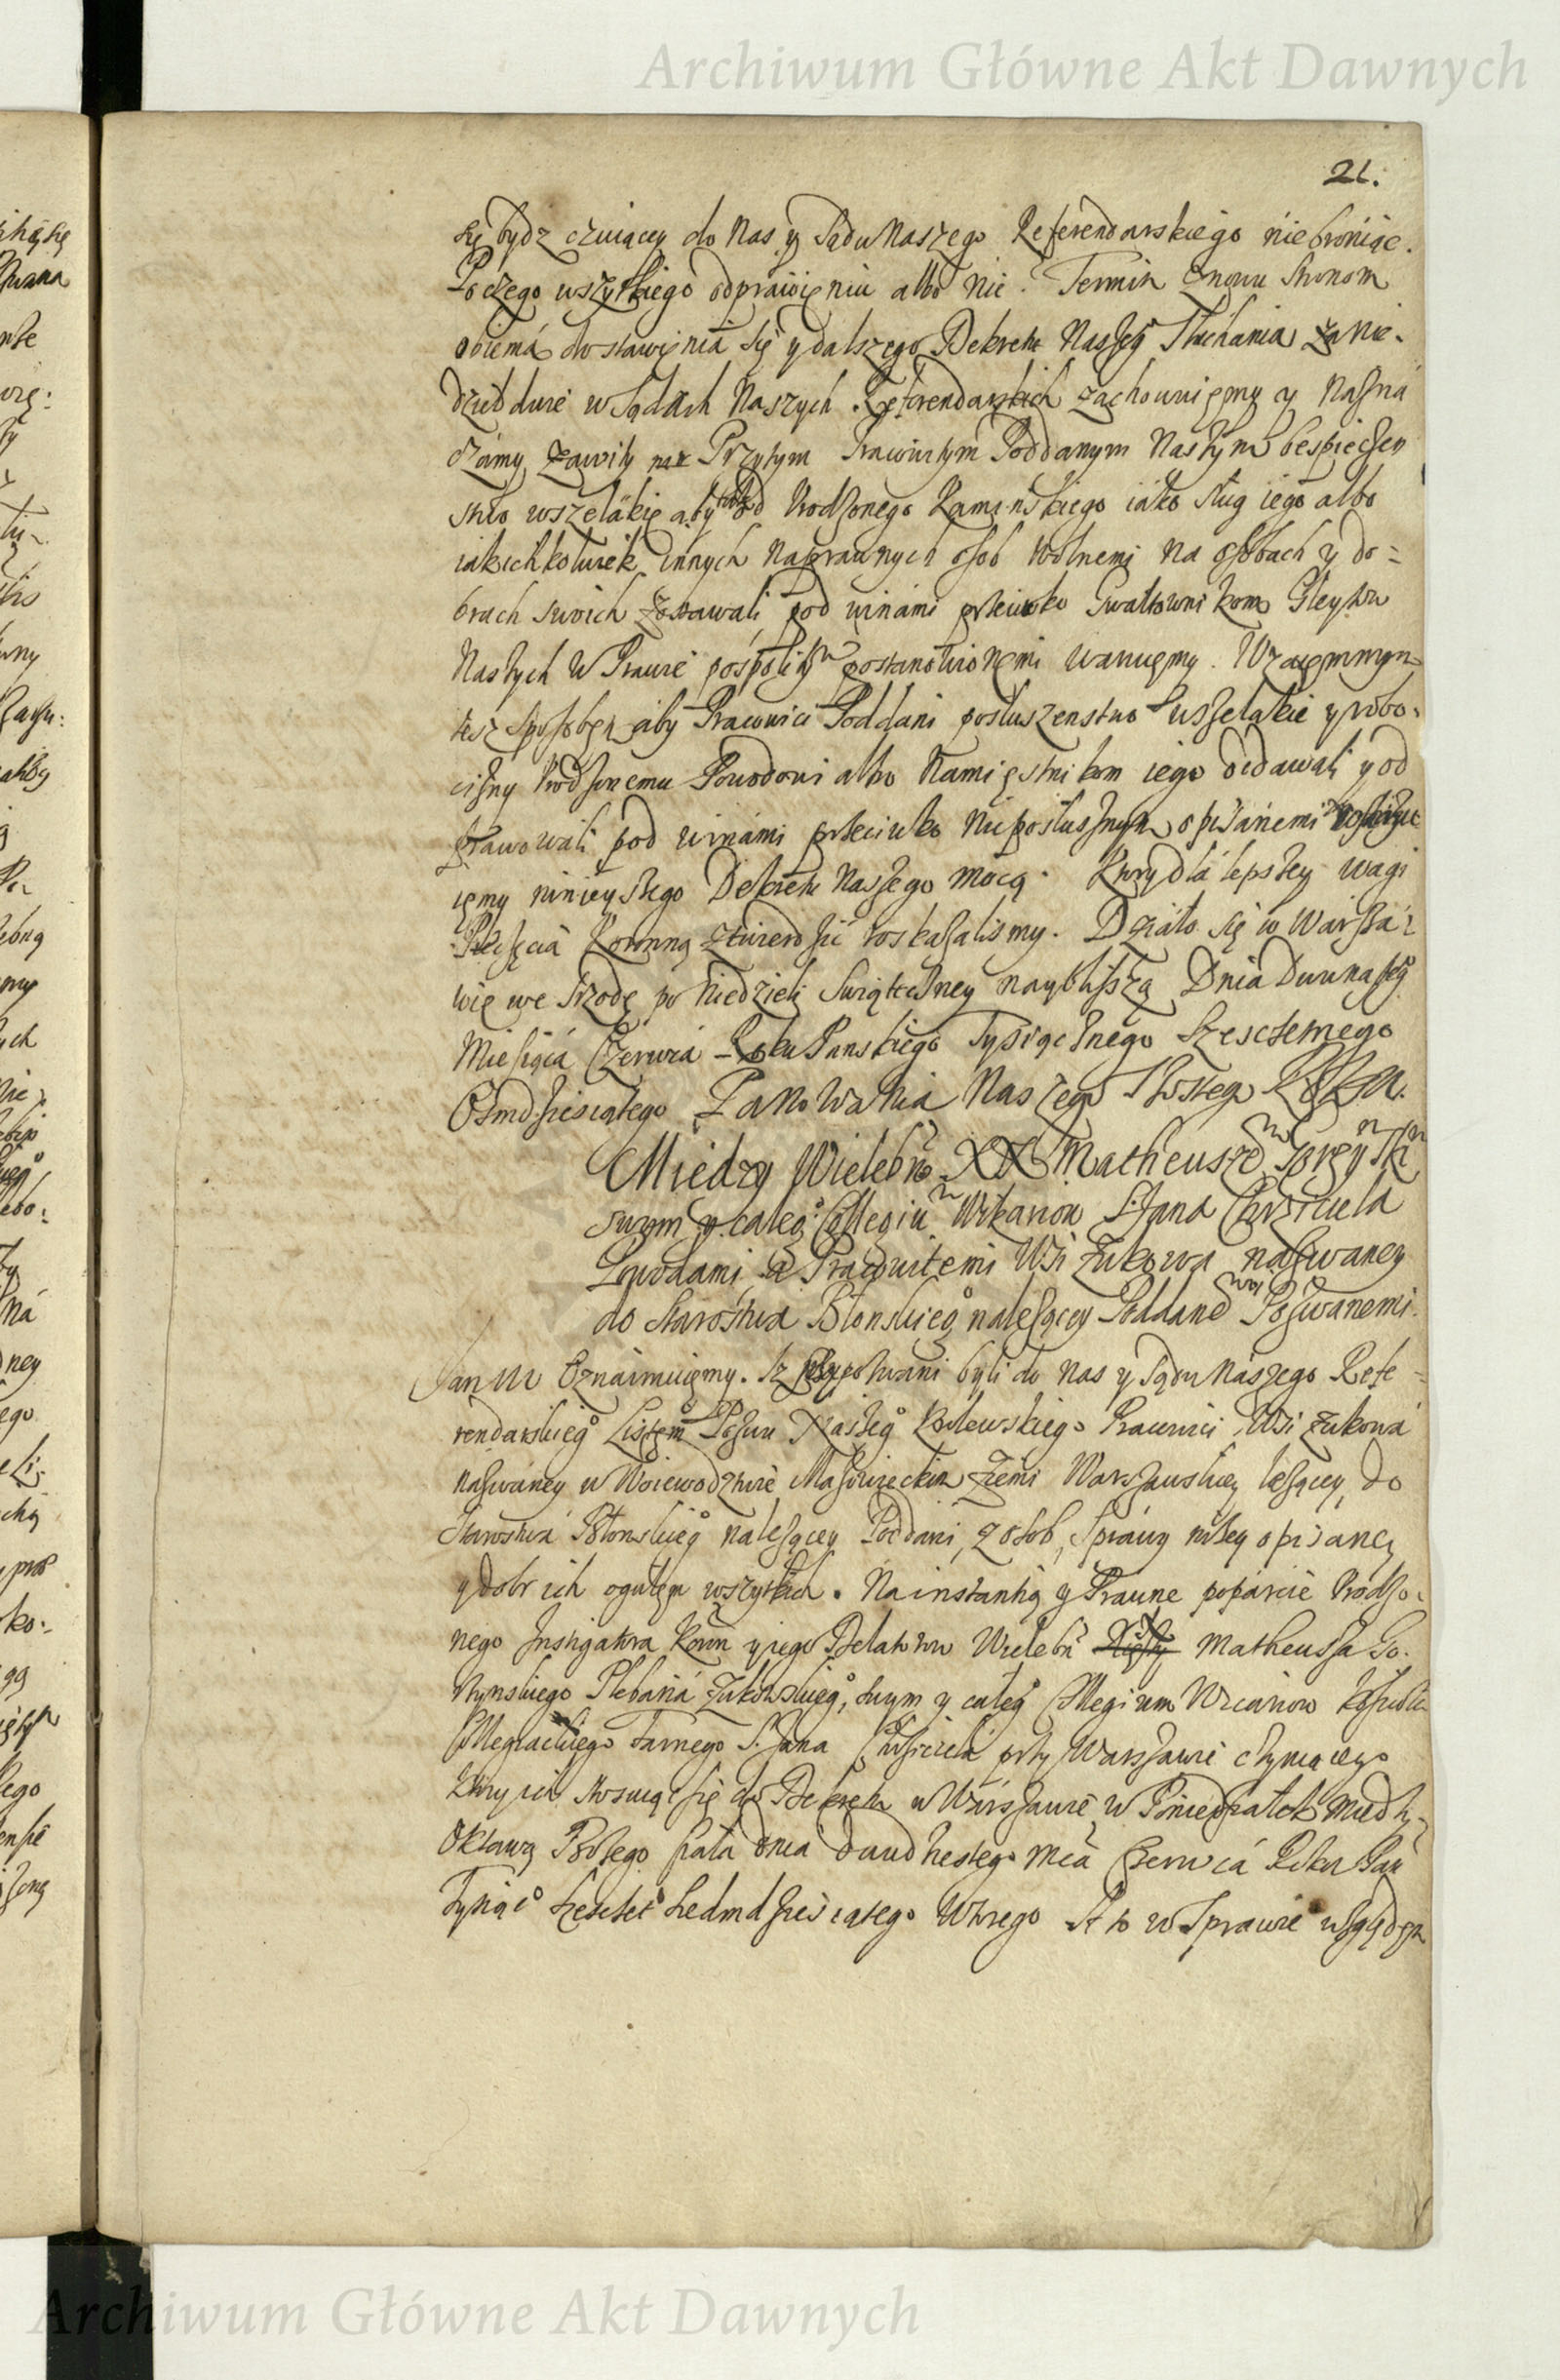 Archiwum Główne Akt Dawnych
21.
się bydz czuiącey do Nas y Sądu Naszego Referendarskiego niebroniąc.
Po czego wszytkiego odprawieniu albo nie. Termin znowu Stronom
obiemá do stawieniá się y dalszego Dekretu Nasze° Słuchania za Nie-
dziel dwie w Sądách Naszych Referendarskich zachowuiemy y Nazná
czámy zawity Przytym Pracowitym Poddanym Naszym bespieczen
stwo wszelákie aby od Urodzonego Kaminskiego iáko sług iego albo
iakichkolwiek innych Naprawnych osob wolnemi na osobach y do=
brach swoich zostawali pod winámi przeciwko Gwałtownikom Gleytow
Naszych w Prawie pospolitym postanowionemi waruiemy. Wzaiemnym
tesz sposobem aby Pracowici Poddani posłuszenstwo wszelakie y robo-
cizny Urodzonemu Powodowi albo Namięstnikom iego oddawali y od
prawowali pod winámi przeciwko Nieposłusznym opisánemi
iemy ninieyszego Dekretu Naszego mocą. Ktory dlá lepszey wagi
Pieczęcią Koronną ztwierdzić roskazalismy. Działo się w Warszá-
wie we Srzodę po Niedzieli Swiąteczney naybliszszą Dnia Dwunaste°
Miesiącá Czerwcá Roku Panskiego Tysiącznego Szescsetnego
Osmdziesiątego Panowania Naszego Szostego Roku.
Miedzy Wielebn. XX Matheuszem Gorzynski
suym y całe° Collegium Wikariow S. Jana Chrzciciela
Powodami a Pracowitemi Wsi Zukowa nazwaney
do Starostwa Błonskie° nalezącey Poddanemi Pozwanemi.
Jan III Oznaimuiemy. Iz przypozwani byli do Nas y Sądu Naszego Refe-
rendarskie° Listem Pozwu Nasze° Krolewskiego Pracowici Wsi Zukowá
nazwáney w Woiewodztwie Mazowieckim Ziemi Warszawskiey lezącey do
Starostwá Błonskie° nalezącey Poddani, z osob, Spráwy nizey opisaney
y dobr ich ogułem wszytkich. Na instantią y Prawne popárcie Urodzo-
nego Instigatora Koron y iego Delatorow Wielebn Matheusza Go.
rzynskiego Plebaná Zukowskie°, suym y całe° Collegium Wicariow Koscioła
Collegiackiego Farnego S. Jana Chrzciciela przy Warszawie czyniącego
Ktory ich stosuiąc się do Dekretu w Wárszawie w Poniedziałek miedzy
Oktawą Bozego Ciała dnia dwudziestego Mcá Czerwcá Roku Pań
Tysiąc° szescset° siedmdziesiątego Wtorego A to w Sprawie wzglądem
Archiwum Główne Akt Dawnych